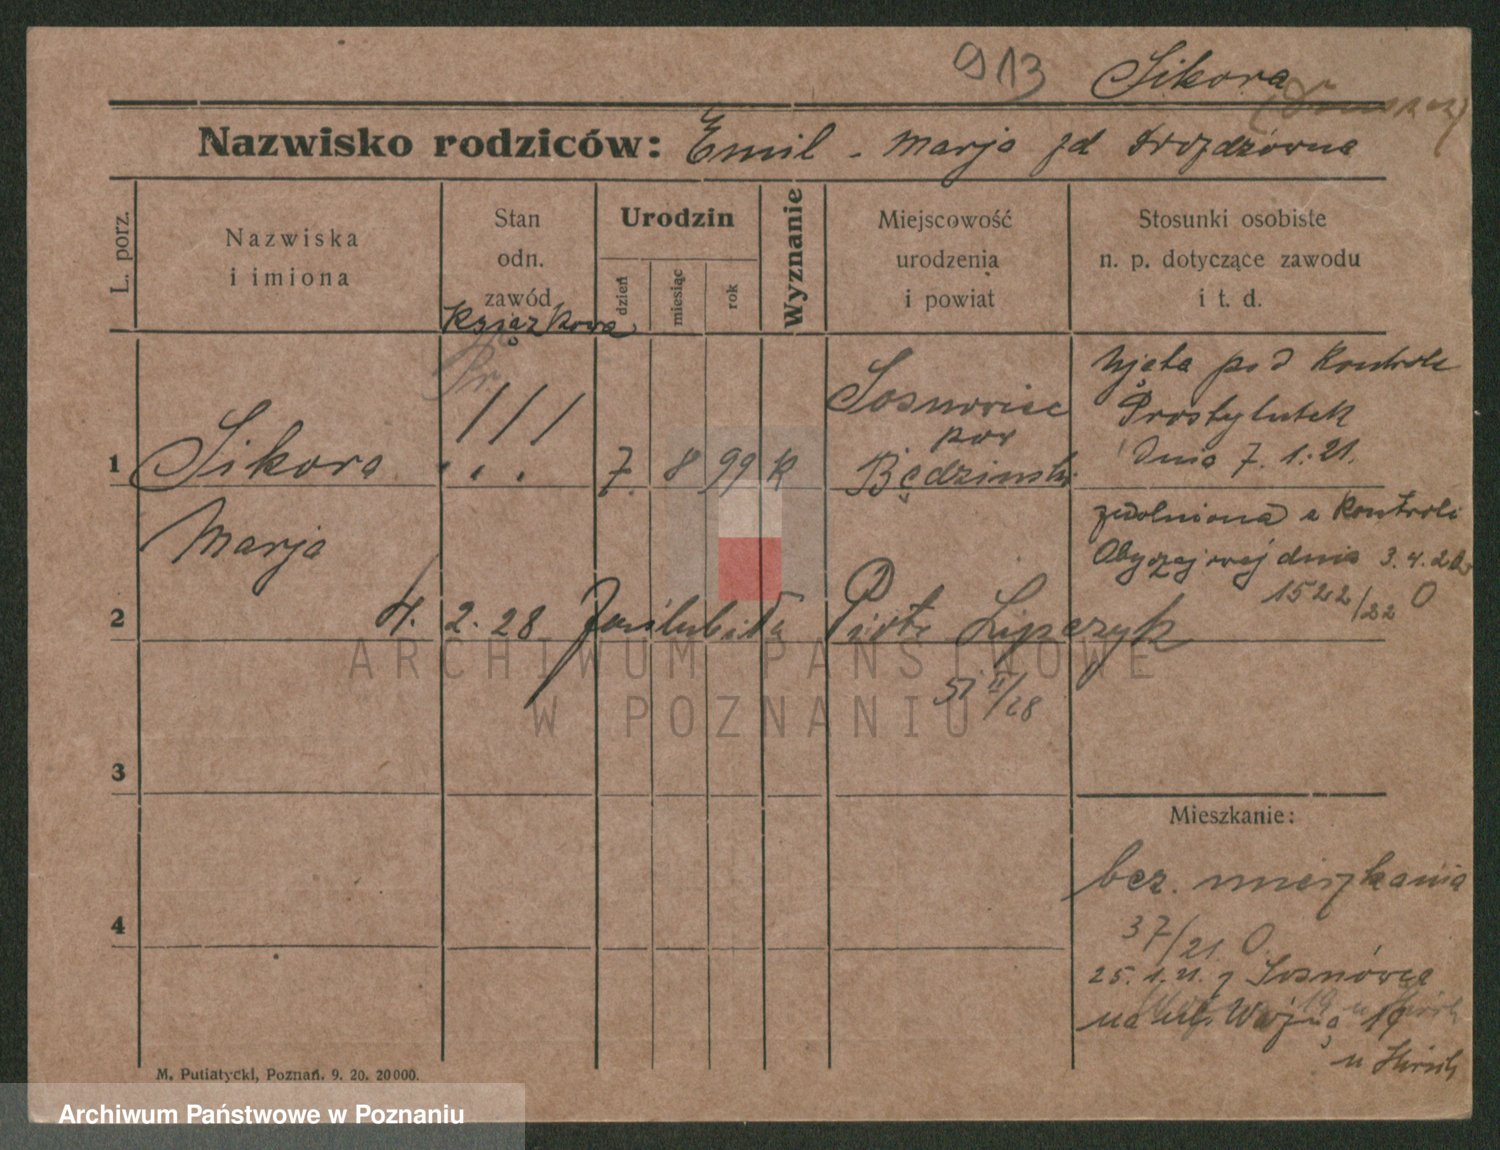 913 Sikora
Nazwisko rodziców: Emil - Marja zd Drozdzówna
L. porz.
Nazwiska
i imiona
Stan
odn.
zawód
książkowa
Urodzin
dzień
miesiąc
rok
Wyznanie
Miejscowość
urodzenia
i powiat
Stosunki osobiste
n. p. dotyczące zawodu
i t. d.
Pr.
1 Sikora 7. 8 99 K
Marja
Sosnowiec
pow
Będzinski
Ujęta pod Kontrole
Prostytutek
Dnia 7.1.21.
zwolniona z Kontroli
Obyczajowej dnia 3.4.22
1522/22 O
2 4. 2. 28 Piotr Lipczyk
51 II/28
3
4
Mieszkanie:
bez mieszkania
37/21 O.
25.1.21. z Sosnówca
na ul. Wozną 19
u Hirsch
M. Putiatycki, Poznań. 9. 20. 20000.
ARCHIWUM PAŃSTWOWE
W POZNANIU
Archiwum Państwowe w Poznaniu